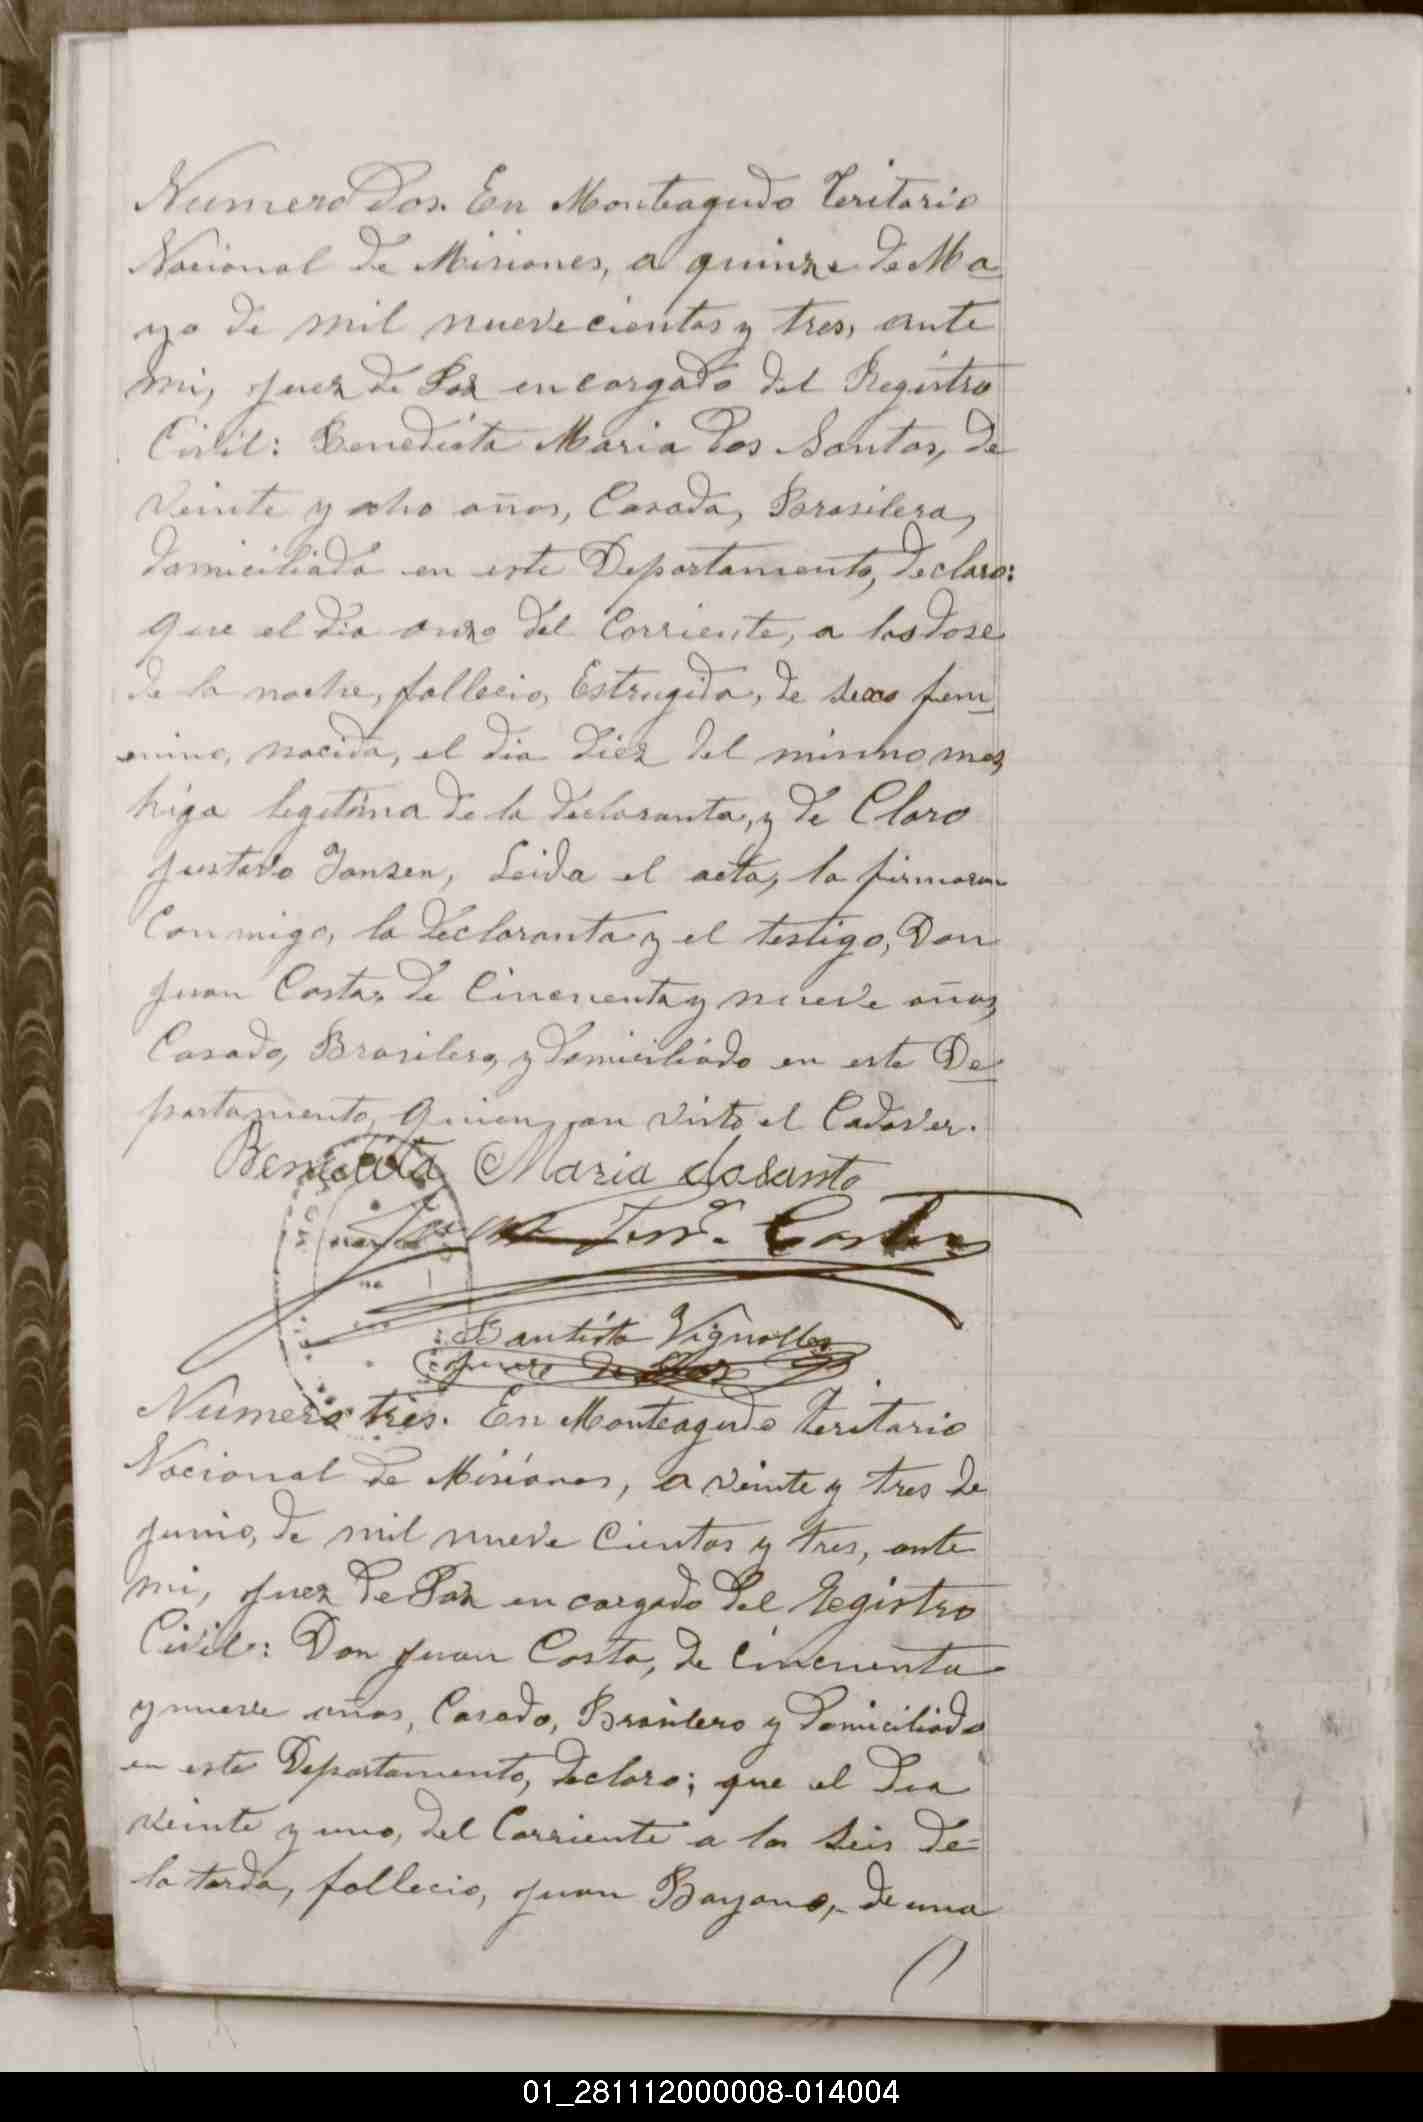 Numero Dos. En Monteagudo Teritorio
Nacional de Misiones, a quinze de Ma
yo de mil nuevecientos y tres, ante
mi, juez de Paz encargado del Registro
Civil: Benedicta Maria Dos Santos, de
veinte y ocho años, Casada, Brasilera,
domiciliada en este Departamento, declaro:
que el dia onze del Corriente, a las dose
de la noche, fallecio, Estrugida, de sexo fem
enino, nacida, el dia diez del mismo mes,
higa legitima de la declaranta, y de Claro
Justavo Jansen, Leida el acta, la firmaron
Conmigo, la declaranta y el testigo, Don
Juan Costa, de Cincuenta y nueve años,
Casado, Brasilero, y domiciliado en este De
partamento, quien an visto el Cadaver.
Benedicta Maria dosanto
Juan Costa
Bautista Vignolles
juez de Paz
Numero tres. En Monteagudo teritorio
Nacional de Misiones, a veinte y tres de
junio, de mil nueve Cientos y tres, ante
mi, juez de Paz encargado del Registro
Civil: Don Juan Costa, de Cincuenta
y nueve años, Casado, Brasilero y domiciliado
en este Departamento, declaro; que el dia
veinte y uno, del Corriente a las seis de
la tarda, fallecio, Juan Bayano, de una
01_281112000008-014004